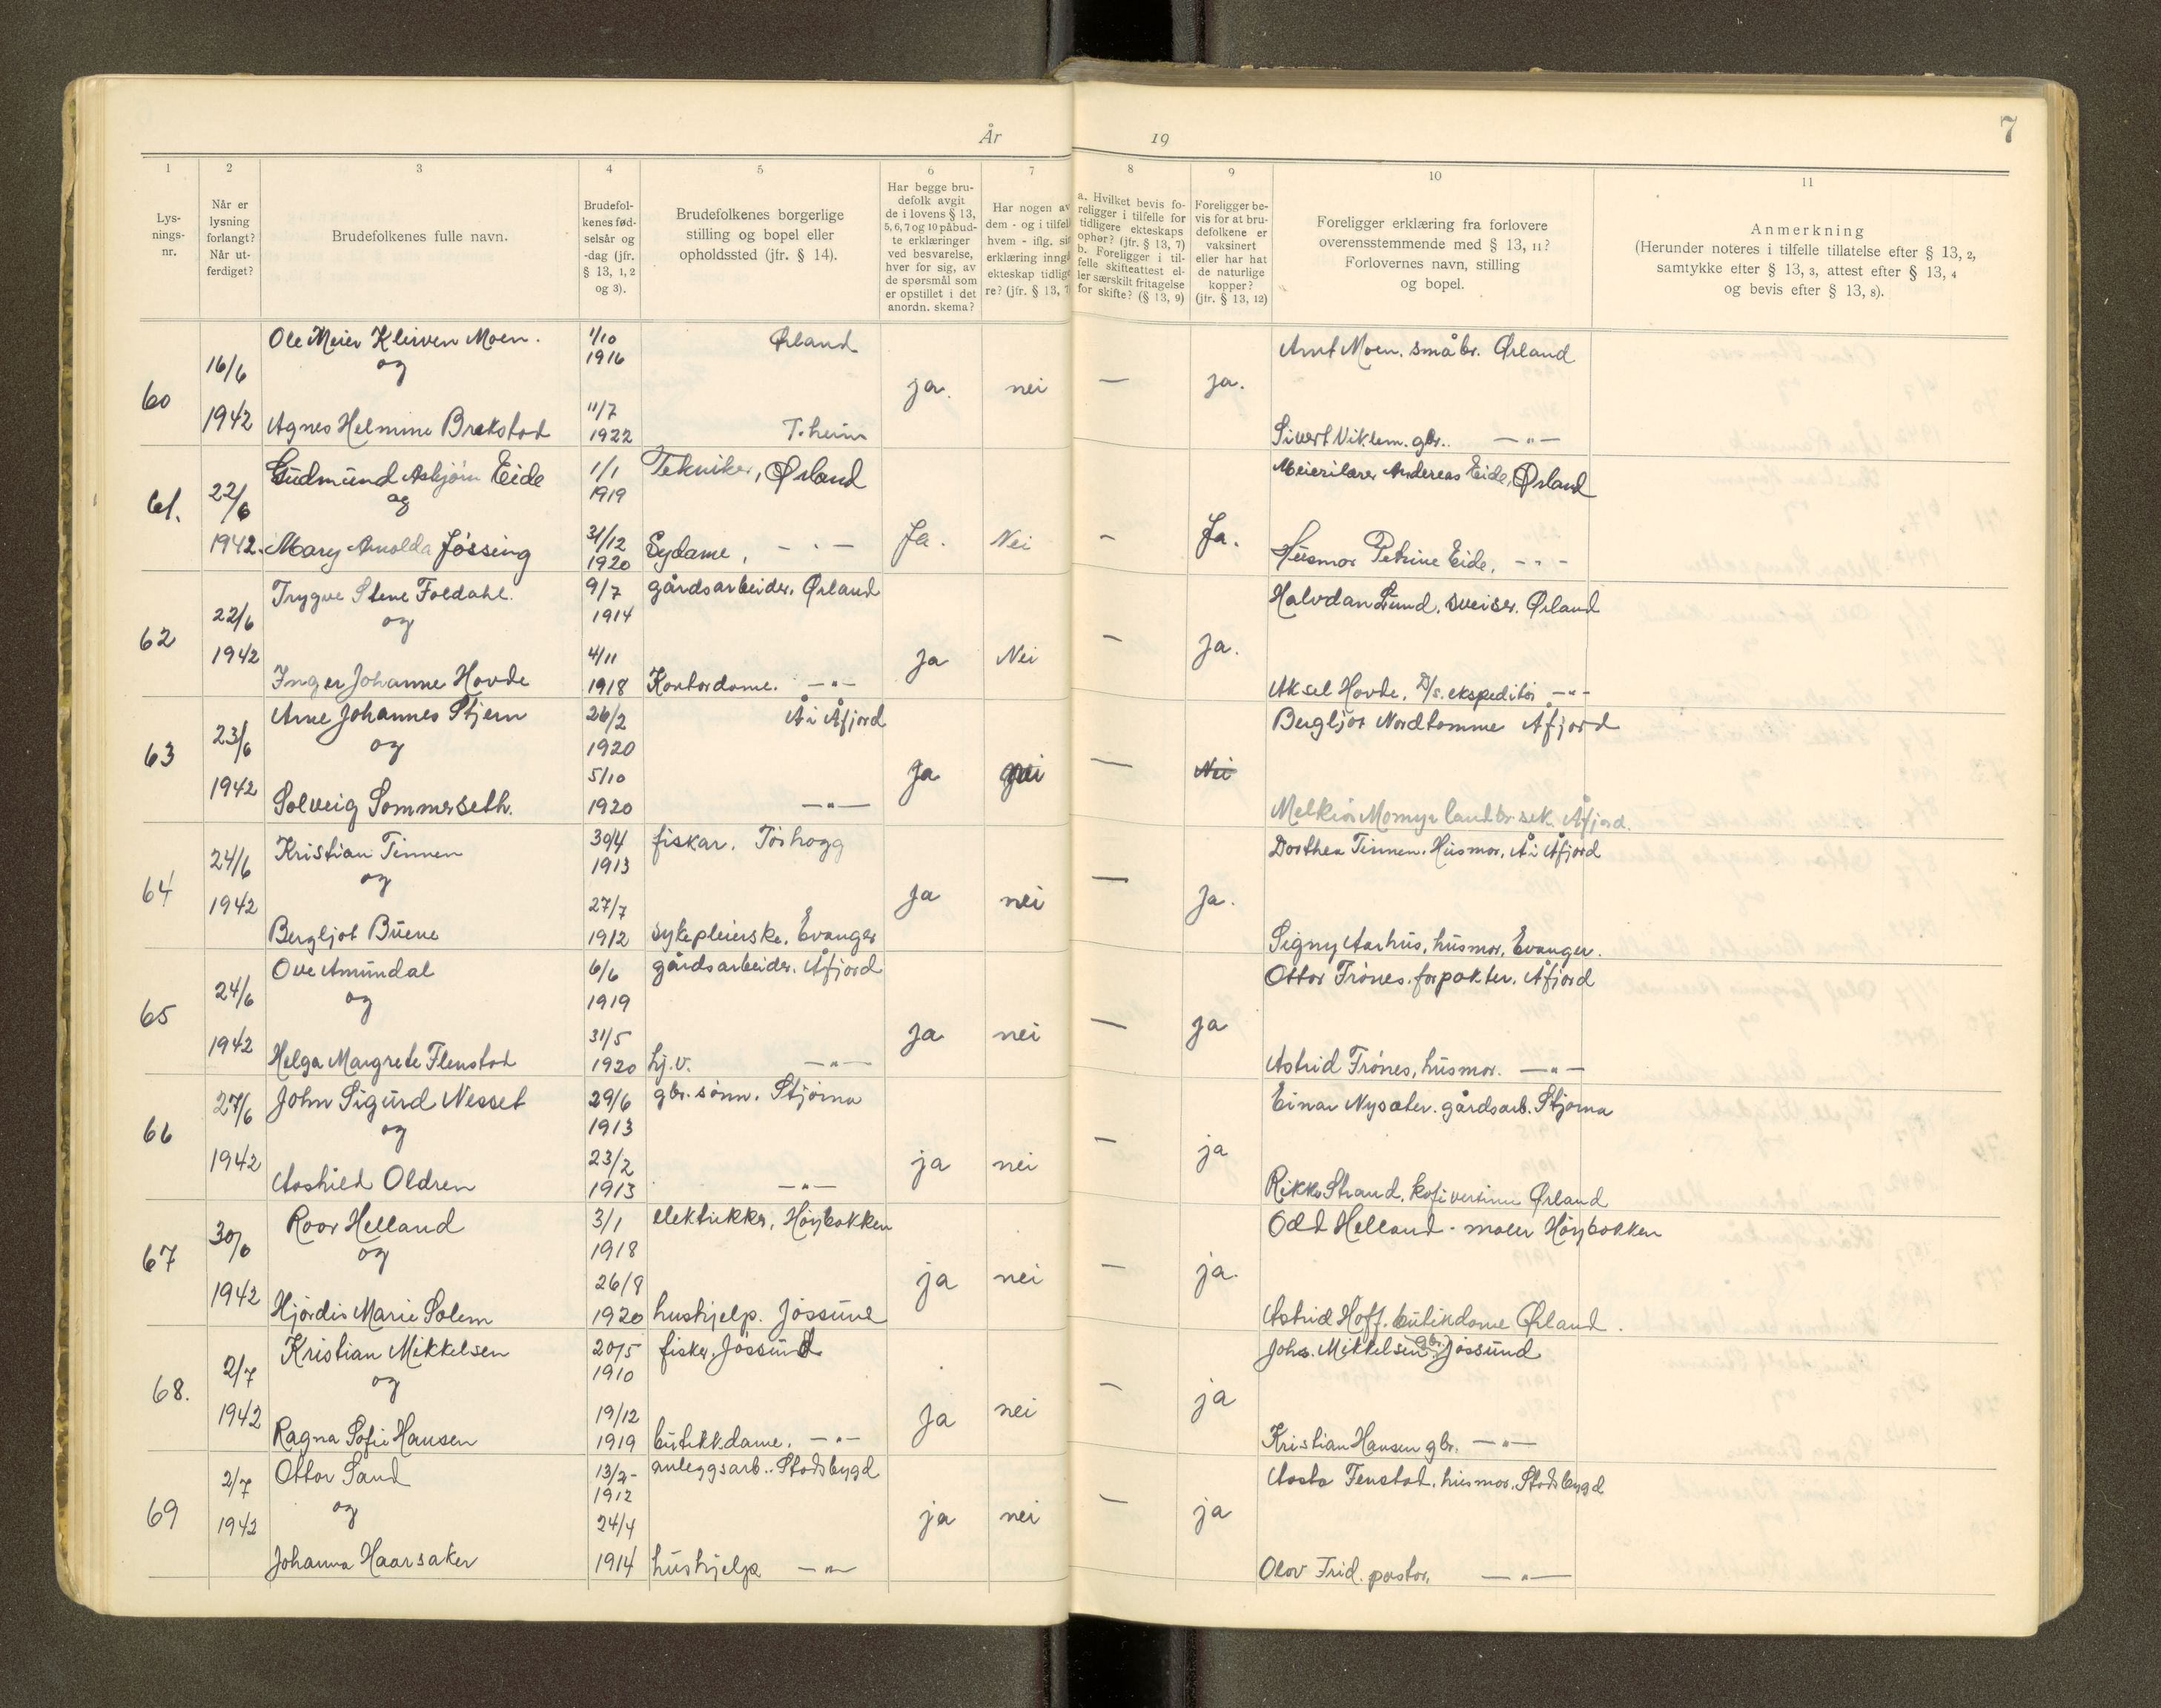 År 19
7
1 2 3 4 5 6 7 8 9 10 11
Lys-
nings-
nr.
Når er
lysning
forlangt?
Når ut-
ferdiget?
Brudefolkenes fulle navn.
Brudefol-
kenes fød-
selsår og
-dag (jfr.
§ 13, 1, 2
og 3).
Brudefolkenes borgerlige
stilling og bopel eller
opholdssted (jfr. § 14).
Har begge bru-
defolk avgit
de i lovens § 13,
5, 6, 7 og 10 påbud-
te erklæringer
ved besvarelse,
hver for sig, av
de spørsmål som
er opstillet i det
anordn. skema?
Har nogen av
dem - og i tilfel
hvem - iflg. si
erklæring inngå
ekteskap tidlige
re? (jfr. § 13, 7
a. Hvilket bevis fo-
religger i tilfelle for
tidligere ekteskaps
ophør? (jfr. § 13, 7)
b. Foreligger i til-
felle skifteattest el-
ler særskilt fritagelse
for skifte? (§ 13, 9)
Foreligger be-
vis for at bru-
defolkene er
vaksinert
eller har hat
de naturlige
kopper?
(jfr. § 13, 12)
Foreligger erklæring fra forlovere
overensstemmende med § 13, 11?
Forlovernes navn, stilling
og bopel.
Anmerkning
(Herunder noteres i tilfelle tillatelse efter § 13, 2,
samtykke efter § 13, 3, attest efter § 13, 4
og bevis efter § 13, 8).
Ole Meier Kleiven Moen. 1/10 Ørland Arnt Moen. småbr. Ørland
16/6 og 1916
60 ja. nei — ja.
11/7
1942 Agnes Helmine Brekstad 1922 T.heim Sivert Viklem. gbr. —"—
Gudmund Asbjørn Eide 1/1 Tekniker, Ørland Meierilærer Andereas Eide, Ørland
61. 22/6 og 1919
Ja. Nei - Ja.
1942. Mary Arnolda Jøssing 31/12 1920 Sydame, - " — Husmor Petrine Eide, - " -
Trygve Stene Foldahl. 9/7 gårdsarbeider. Ørland Halvdan Lund. sveiser. Ørland
22/6 og 1914
62 Ja Nei — ja.
1942 4/11
Inger Johanne Hovde 1918 Kontordame. —"— Aksel Hovde, D/s. ekspeditør —"—
Arne Johannes Stjern 26/2 Å i Åfjord Bergljot Nordtømme Åfjord
23/6 og 1920
63 Ja nei — Nei
1942 5/10
Solveig Sommerseth. 1920 —"— Melkior Momyr landbr. sek. Åfjord.
Kristian Tinnen 30/4 fiskar. Tørhogg Dorthea Tinnen. Husmor, Å i Åfjord
24/6 og 1913
64 Ja nei — Ja.
1942 27/7
Bergljot Buene 1912 sykepleierske. Evanger Signy Aarhus, husmor, Evanger.
Ove Amundal 6/6 gårdsarbeider. Åfjord Ottar Trønes. forpakter. Åfjord
24/6 og 1919
65 Ja nei — ja
1942 31/5
Helga Margrete Flenstad 1920 hj.v. —"— Astrid Trønes, husmor. —"—
John Sigurd Nesset 29/6 gbr. sønn. Stjørna Einar Nysæter. gårdsarb. Stjørna
27/6 og 1913
66 ja nei — ja
1942 23/2
Aashild Oldren 1913 —"— Rikke Strand. kafivertinne Ørland
Roar Helland 3/1 elektrikker, Høybakken Odd Helland - maler Høybakken
30/6 og 1918
67 ja nei — ja.
1942 26/8
Hjørdis Marie Solem 1920 hushjelp. Jøssund Astrid Hoff. butikdame Ørland.
Kristian Mikkelsen 20/5 fisker. Jøssund. Johs. Mikkelsen. gbr. Jøssund
2/7 og 1910
68. Ja nei — ja
1942 19/12
Ragna Sofie Hansen 1919 butikkdame. —"— Kristian Hansen gbr. —"—
Ottar Sand 13/2- anleggsarb.. Stadsbygd Aasta Fenstad. husmor. Stadsbygd
2/7 og 1912
69 ja nei — ja
1942 24/4
Johanna Haarsaker 1914 hushjelp —"— Olav Frid. pastor, —"—